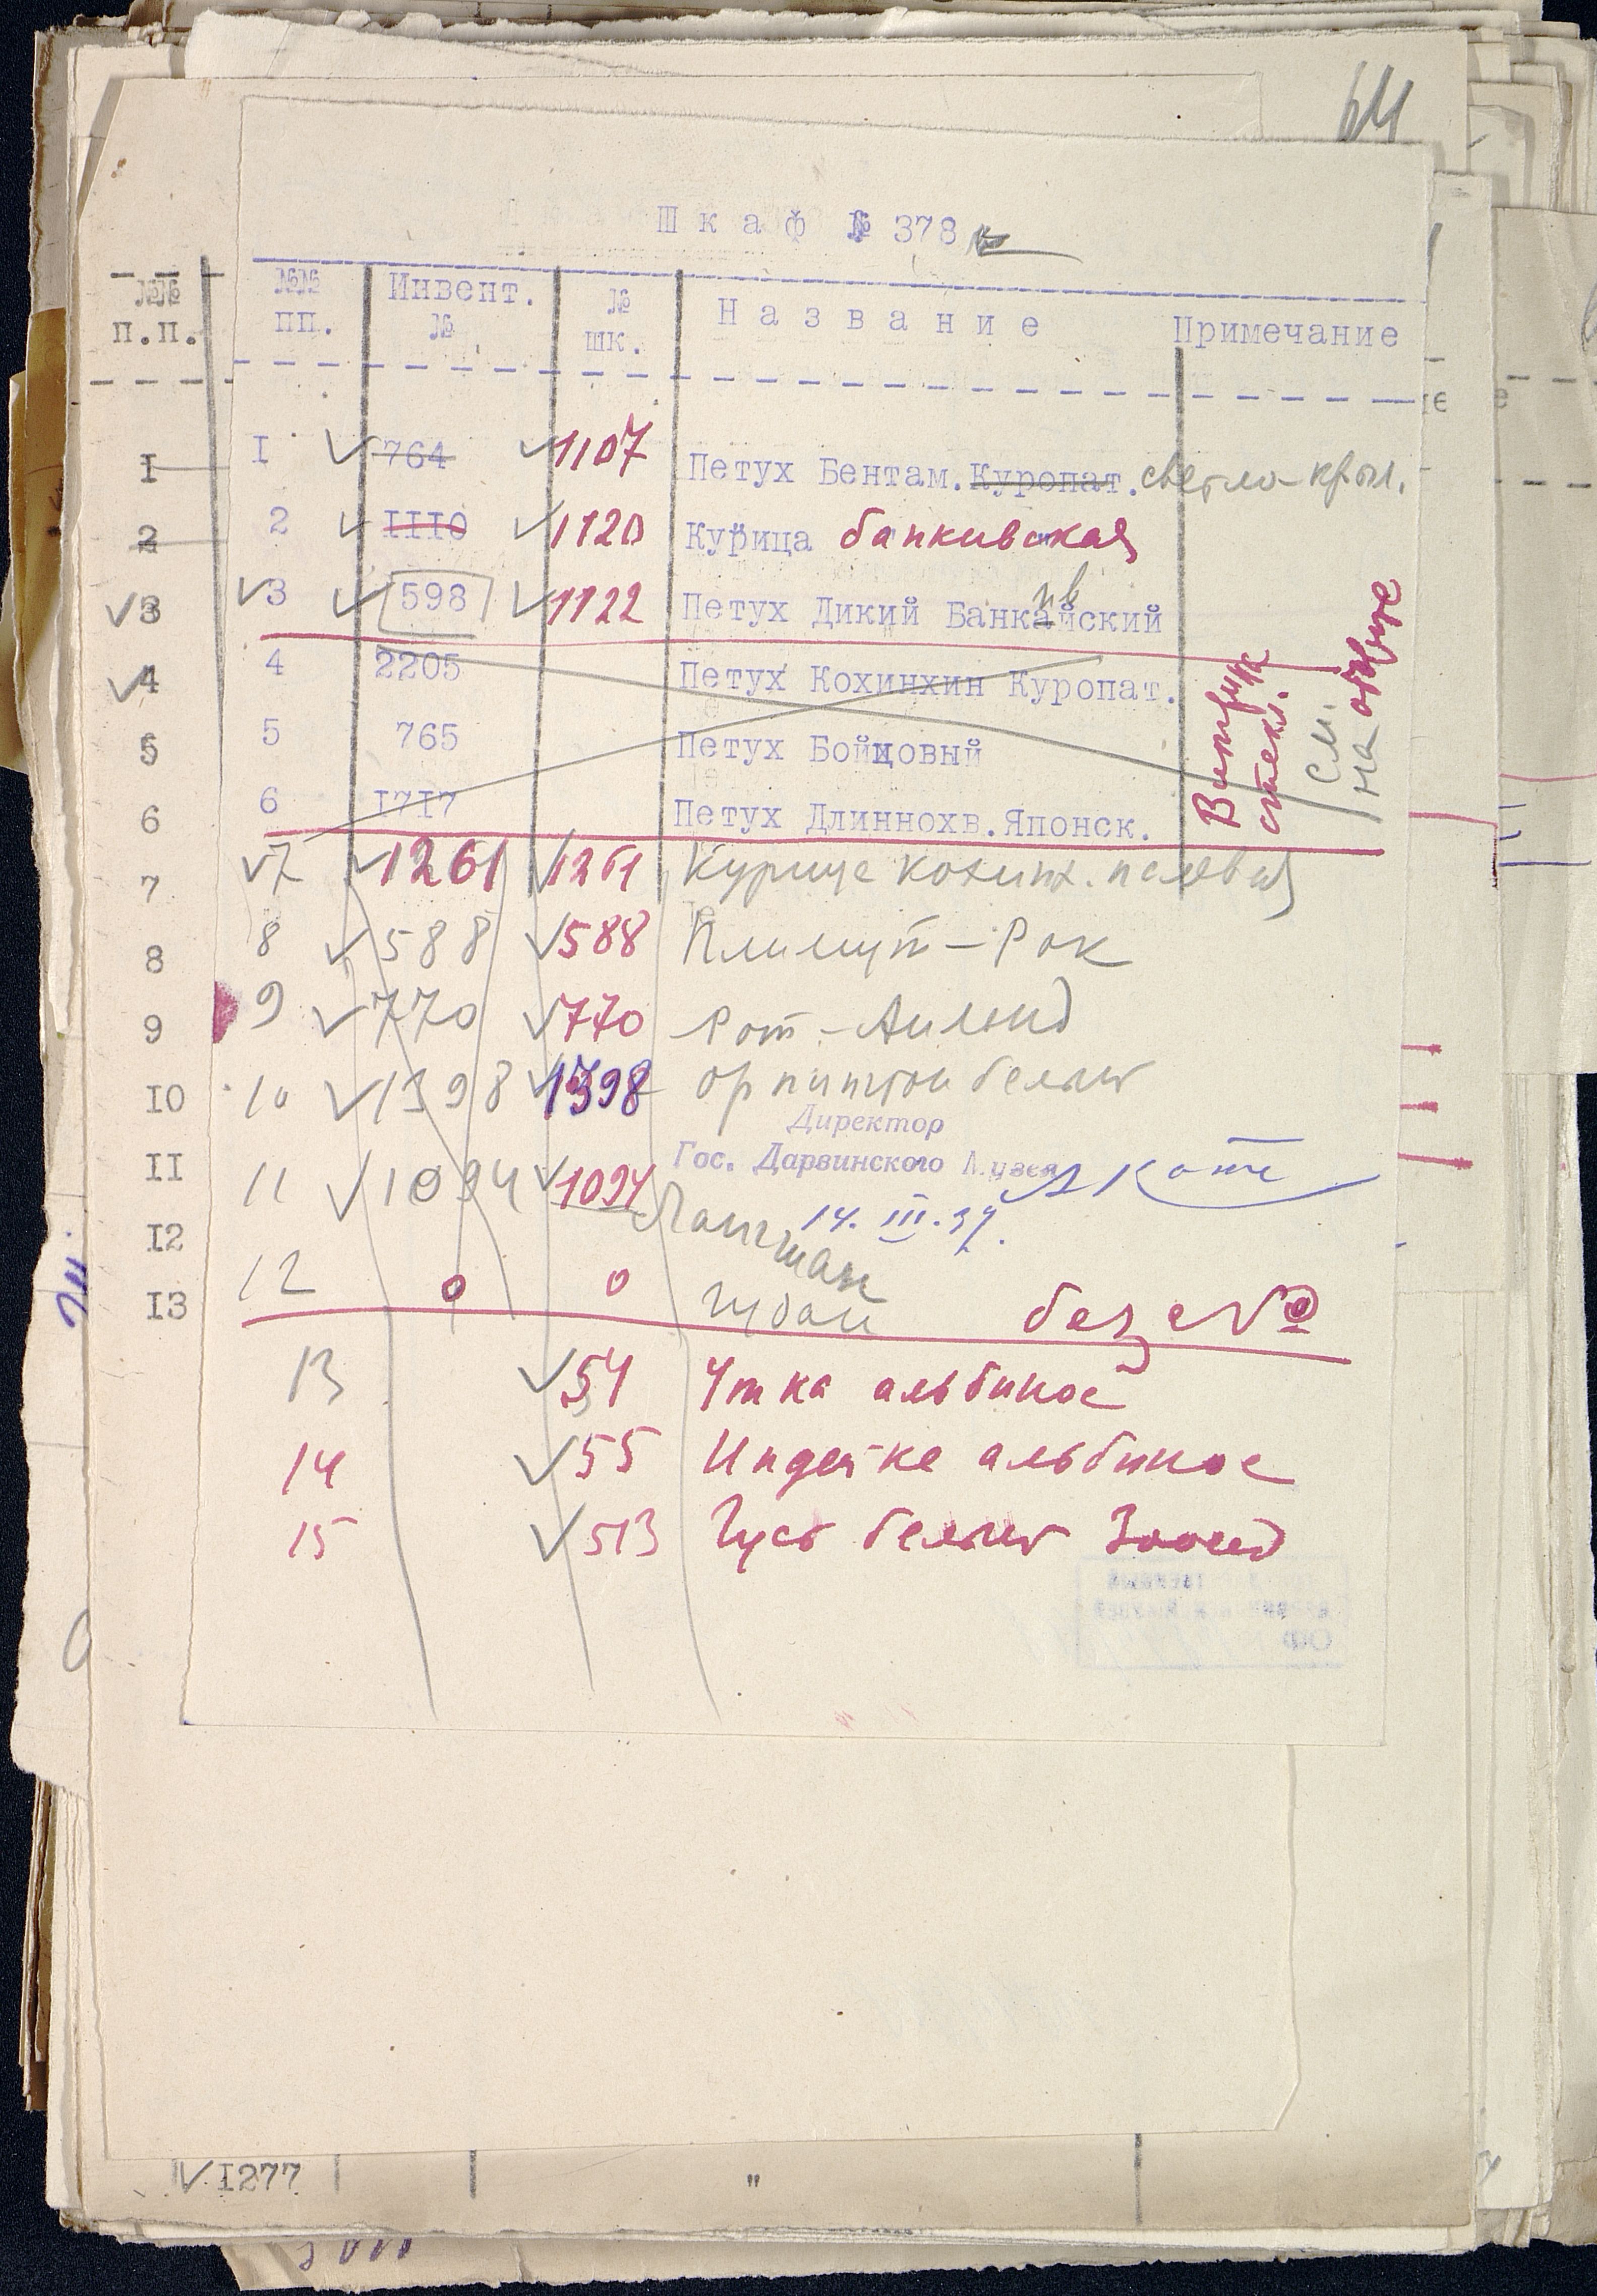 64
Шкаф № 378
№№ п.п.
№№ пп. Инвент. № № шк. Название Примечание
I I 764 1107 Петух Бентам. Куропат. светло-крыл.
2 2 III0 1120 Курица банкивская
3 3 598 1122 Петух Дикий Банкайский ив
4 4 2205 Петух Кохинхин Куропат.
5 5 765 Петух Бойцовый
6 6 I7I7 Петух Длиннохв. Японск.
Витрина стекл.
см. на обороте
7 7 1261 1261 Курица кохинх. палевая
8 8 588 588 Плимут-Рок
9 9 770 770 Рот-Айланд
IO 10 1398 1398 орпингтон белый
Директор
Гос. Дарвинского Музея А Котс
II 11 1094 1094 Лангшан
14. III. 39.
I2
I3 12 0 0 Гудан без №
13 54 Утка альбинос
14 55 Индейка альбинос
15 513 Гусь белый
I277 "